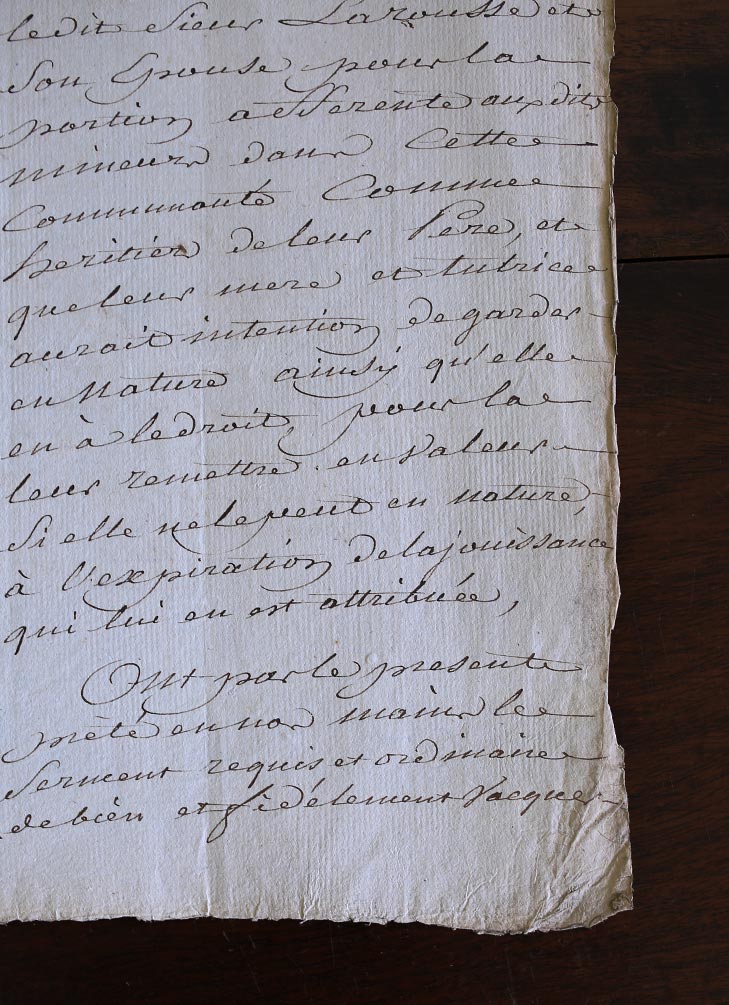 ledit Sieur Larousse et
Son Epouse pour la
portion afferente auxdits
mineurs dans cette
Communauté Comme
heritiers de leur Pere, et
que leur mere et tutrice
aurait intention de garder
en nature ainsy qu'elle
en à le droit, pour la
leur remettre en valeur
Si elle ne le peut en nature,
à l'expiration de la jouissance
qui lui en est attribuée,
Ont par le presente
prêté en nos mains le
Serment requis et ordinaire
de bien et fidélement vacquer